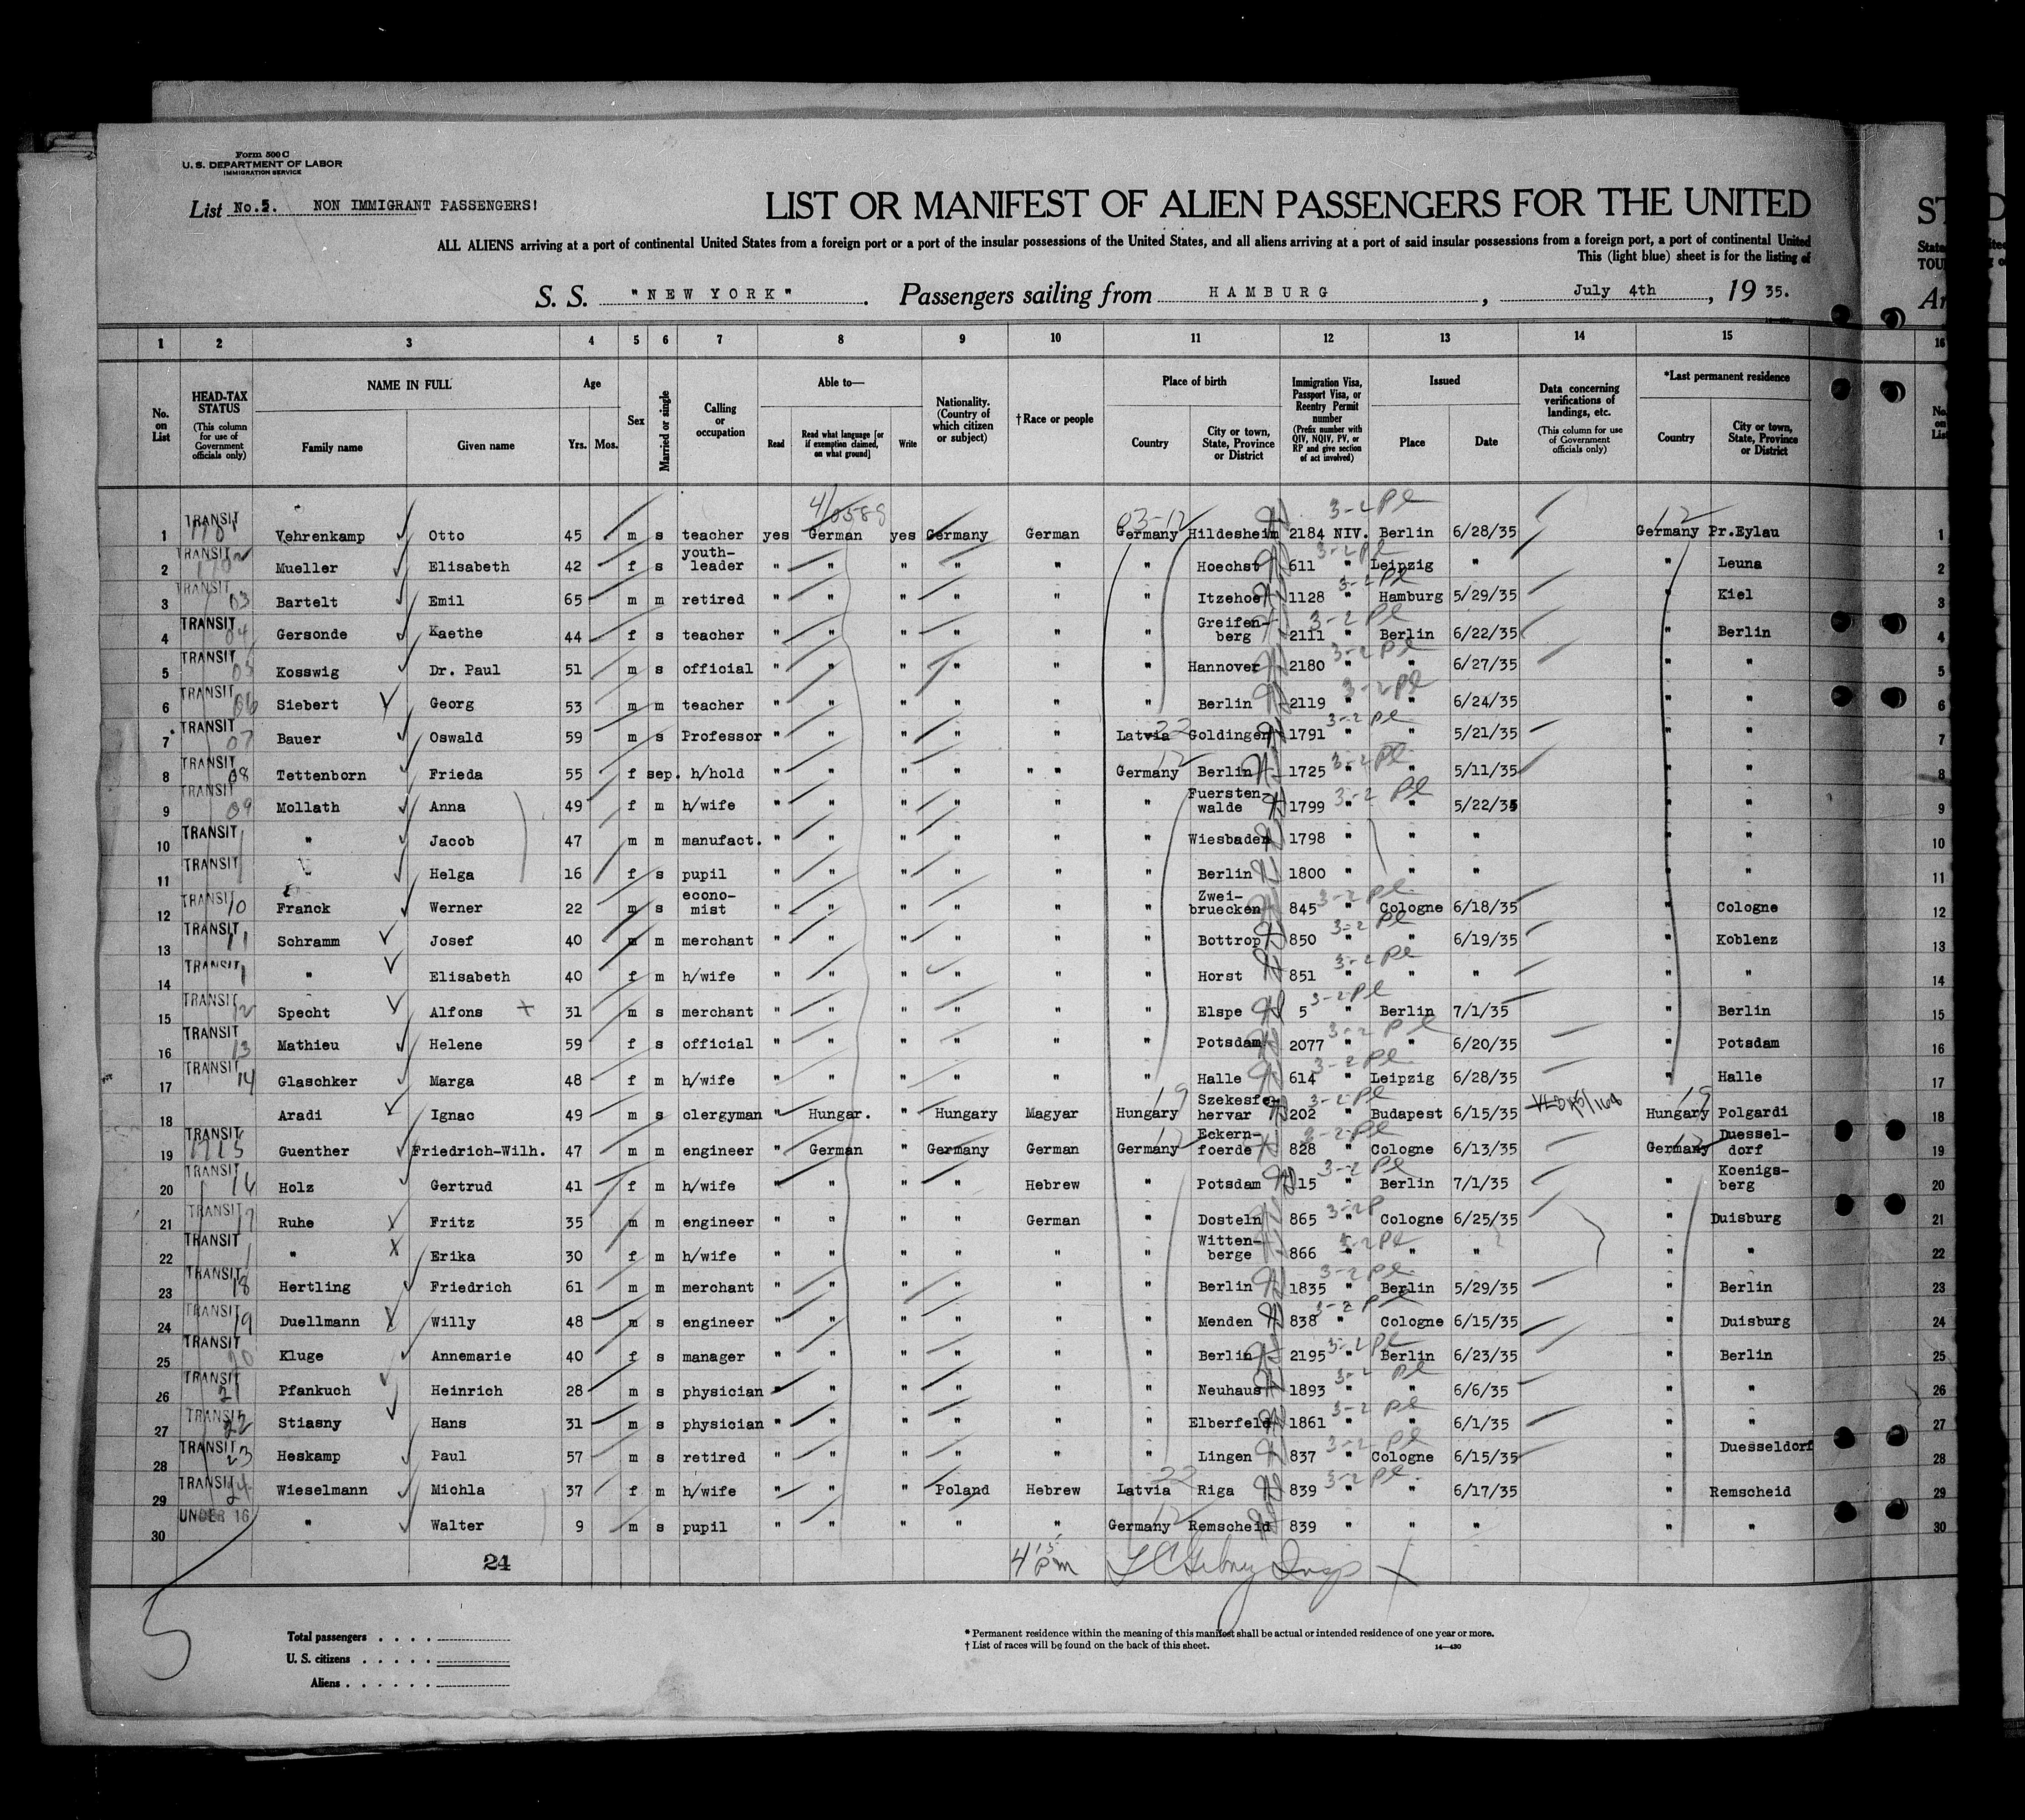 Form 500 C
U. S. DEPARTMENT OF LABOR
IMMIGRATION SERVICE
List No.5. NON IMMIGRANT PASSENGERS!
LIST OR MANIFEST OF ALIEN PASSENGERS FOR THE UNITED
ALL ALIENS arriving at a port of continental United States from a foreign port or a port of the insular possessions of the United States, and all aliens arriving at a port of said insular possessions from a foreign port, a port of continental United
This (light blue) sheet is for the listing of
S. S. "NEW YORK" . Passengers sailing from HAMBURG , July 4th , 19 35.
1 2 3 4 5 6 7 8 9 10 11 12 13 14 15 16
No. on List
HEAD-TAX STATUS (This column for use of Government officials only)
NAME IN FULL Family name Given name
Age Yrs. Mos.
Sex
Married or single
Calling or occupation
Able to— Read Read what language [or if exemption claimed, on what ground] Write
Nationality. (Country of which citizen or subject)
†Race or people
Place of birth Country City or town, State, Province or District
Immigration Visa, Passport Visa, or Reentry Permit number (Prefix number with QIV, NQIV, PV, or RP and give section of act involved)
Issued Place Date
Data concerning verifications of landings, etc. (This column for use of Government officials only)
*Last permanent residence Country City or town, State, Province or District
1 TRANSIT Vehrenkamp Otto 45 m s teacher yes German yes Germany German Germany Hildesheim 2184 NIV. Berlin 6/28/35 Germany Pr.Eylau 1
2 TRANSIT Mueller Elisabeth 42 f s youth-leader " " " " " " Hoechst 611 " Leipzig " " Leuna 2
3 TRANSIT 03 Bartelt Emil 65 m m retired " " " " " " Itzehoe 1128 " Hamburg 5/29/35 " Kiel 3
4 TRANSIT 04 Gersonde Kaethe 44 f s teacher " " " " " " Greifen-berg 2111 " Berlin 6/22/35 " Berlin 4
5 TRANSIT 05 Kosswig Dr. Paul 51 m s official " " " " " " Hannover 2180 " " 6/27/35 " " 5
6 TRANSIT 06 Siebert Georg 53 m m teacher " " " " " " Berlin 2119 " " 6/24/35 " " 6
7 TRANSIT 07 Bauer Oswald 59 m s Professor " " " " " Latvia Goldingen 1791 " " 5/21/35 " " 7
8 TRANSIT 08 Tettenborn Frieda 55 f sep. h/hold " " " " " " Germany Berlin 1725 " " 5/11/35 " " 8
9 TRANSIT 09 Mollath Anna 49 f m h/wife " " " " " " Fuersten-walde 1799 " " 5/22/35 " " 9
10 TRANSIT " Jacob 47 m m manufact. " " " " " " Wiesbaden 1798 " " " " " 10
11 TRANSIT " Helga 16 f s pupil " " " " " " Berlin 1800 " " " " " 11
12 TRANSIT 10 Franck Werner 22 m s econo-mist " " " " " " Zwei-bruecken 845 " Cologne 6/18/35 " Cologne 12
13 TRANSIT 11 Schramm Josef 40 m m merchant " " " " " " Bottrop 850 " " 6/19/35 " Koblenz 13
14 TRANSIT " Elisabeth 40 f m h/wife " " " " " " Horst 851 " " " " " 14
15 TRANSIT 12 Specht Alfons 31 m s merchant " " " " " " Elspe 5 " Berlin 7/1/35 " Berlin 15
16 TRANSIT 13 Mathieu Helene 59 f s official " " " " " " Potsdam 2077 " " 6/20/35 " Potsdam 16
17 TRANSIT 14 Glaschker Marga 48 f m h/wife " " " " " " Halle 614 " Leipzig 6/28/35 " Halle 17
18 Aradi Ignac 49 m s clergyman " Hungar. " Hungary Magyar Hungary Szekesfe-hervar 202 " Budapest 6/15/35 Hungary Polgardi 18
19 TRANSIT Guenther Friedrich-Wilh. 47 m m engineer " German " Germany German Germany Eckern-foerde 828 " Cologne 6/13/35 Germany Duessel-dorf 19
20 TRANSIT 16 Holz Gertrud 41 f m h/wife " " " " Hebrew " Potsdam 15 " Berlin 7/1/35 " Koenigs-berg 20
21 TRANSIT 17 Ruhe Fritz 35 m m engineer " " " " German " Dosteln 865 " Cologne 6/25/35 " Duisburg 21
22 TRANSIT " Erika 30 f m h/wife " " " " " " Witten-berge 866 " " " " " 22
23 TRANSIT 18 Hertling Friedrich 61 m m merchant " " " " " " Berlin 1835 " Berlin 5/29/35 " Berlin 23
24 TRANSIT 19 Duellmann Willy 48 m s engineer " " " " " " Menden 838 " Cologne 6/15/35 " Duisburg 24
25 TRANSIT 20 Kluge Annemarie 40 f s manager " " " " " " Berlin 2195 " Berlin 6/23/35 " Berlin 25
26 TRANSIT 21 Pfankuch Heinrich 28 m s physician " " " " " " Neuhaus 1893 " " 6/6/35 " " 26
27 TRANSIT 22 Stiasny Hans 31 m s physician " " " " " " Elberfeld 1861 " " 6/1/35 " " 27
28 TRANSIT 23 Heskamp Paul 57 m s retired " " " " " " Lingen 837 " Cologne 6/15/35 " Duesseldorf 28
29 TRANSIT 24 Wieselmann Michla 37 f m h/wife " " " Poland Hebrew Latvia Riga 839 " " 6/17/35 " Remscheid 29
30 UNDER 16 " Walter 9 m s pupil " " " " " Germany Remscheid 839 " " " " " 30
24
4 15 pm
5
Total passengers
U. S. citizens
Aliens
* Permanent residence within the meaning of this manifest shall be actual or intended residence of one year or more.
† List of races will be found on the back of this sheet.
14—430